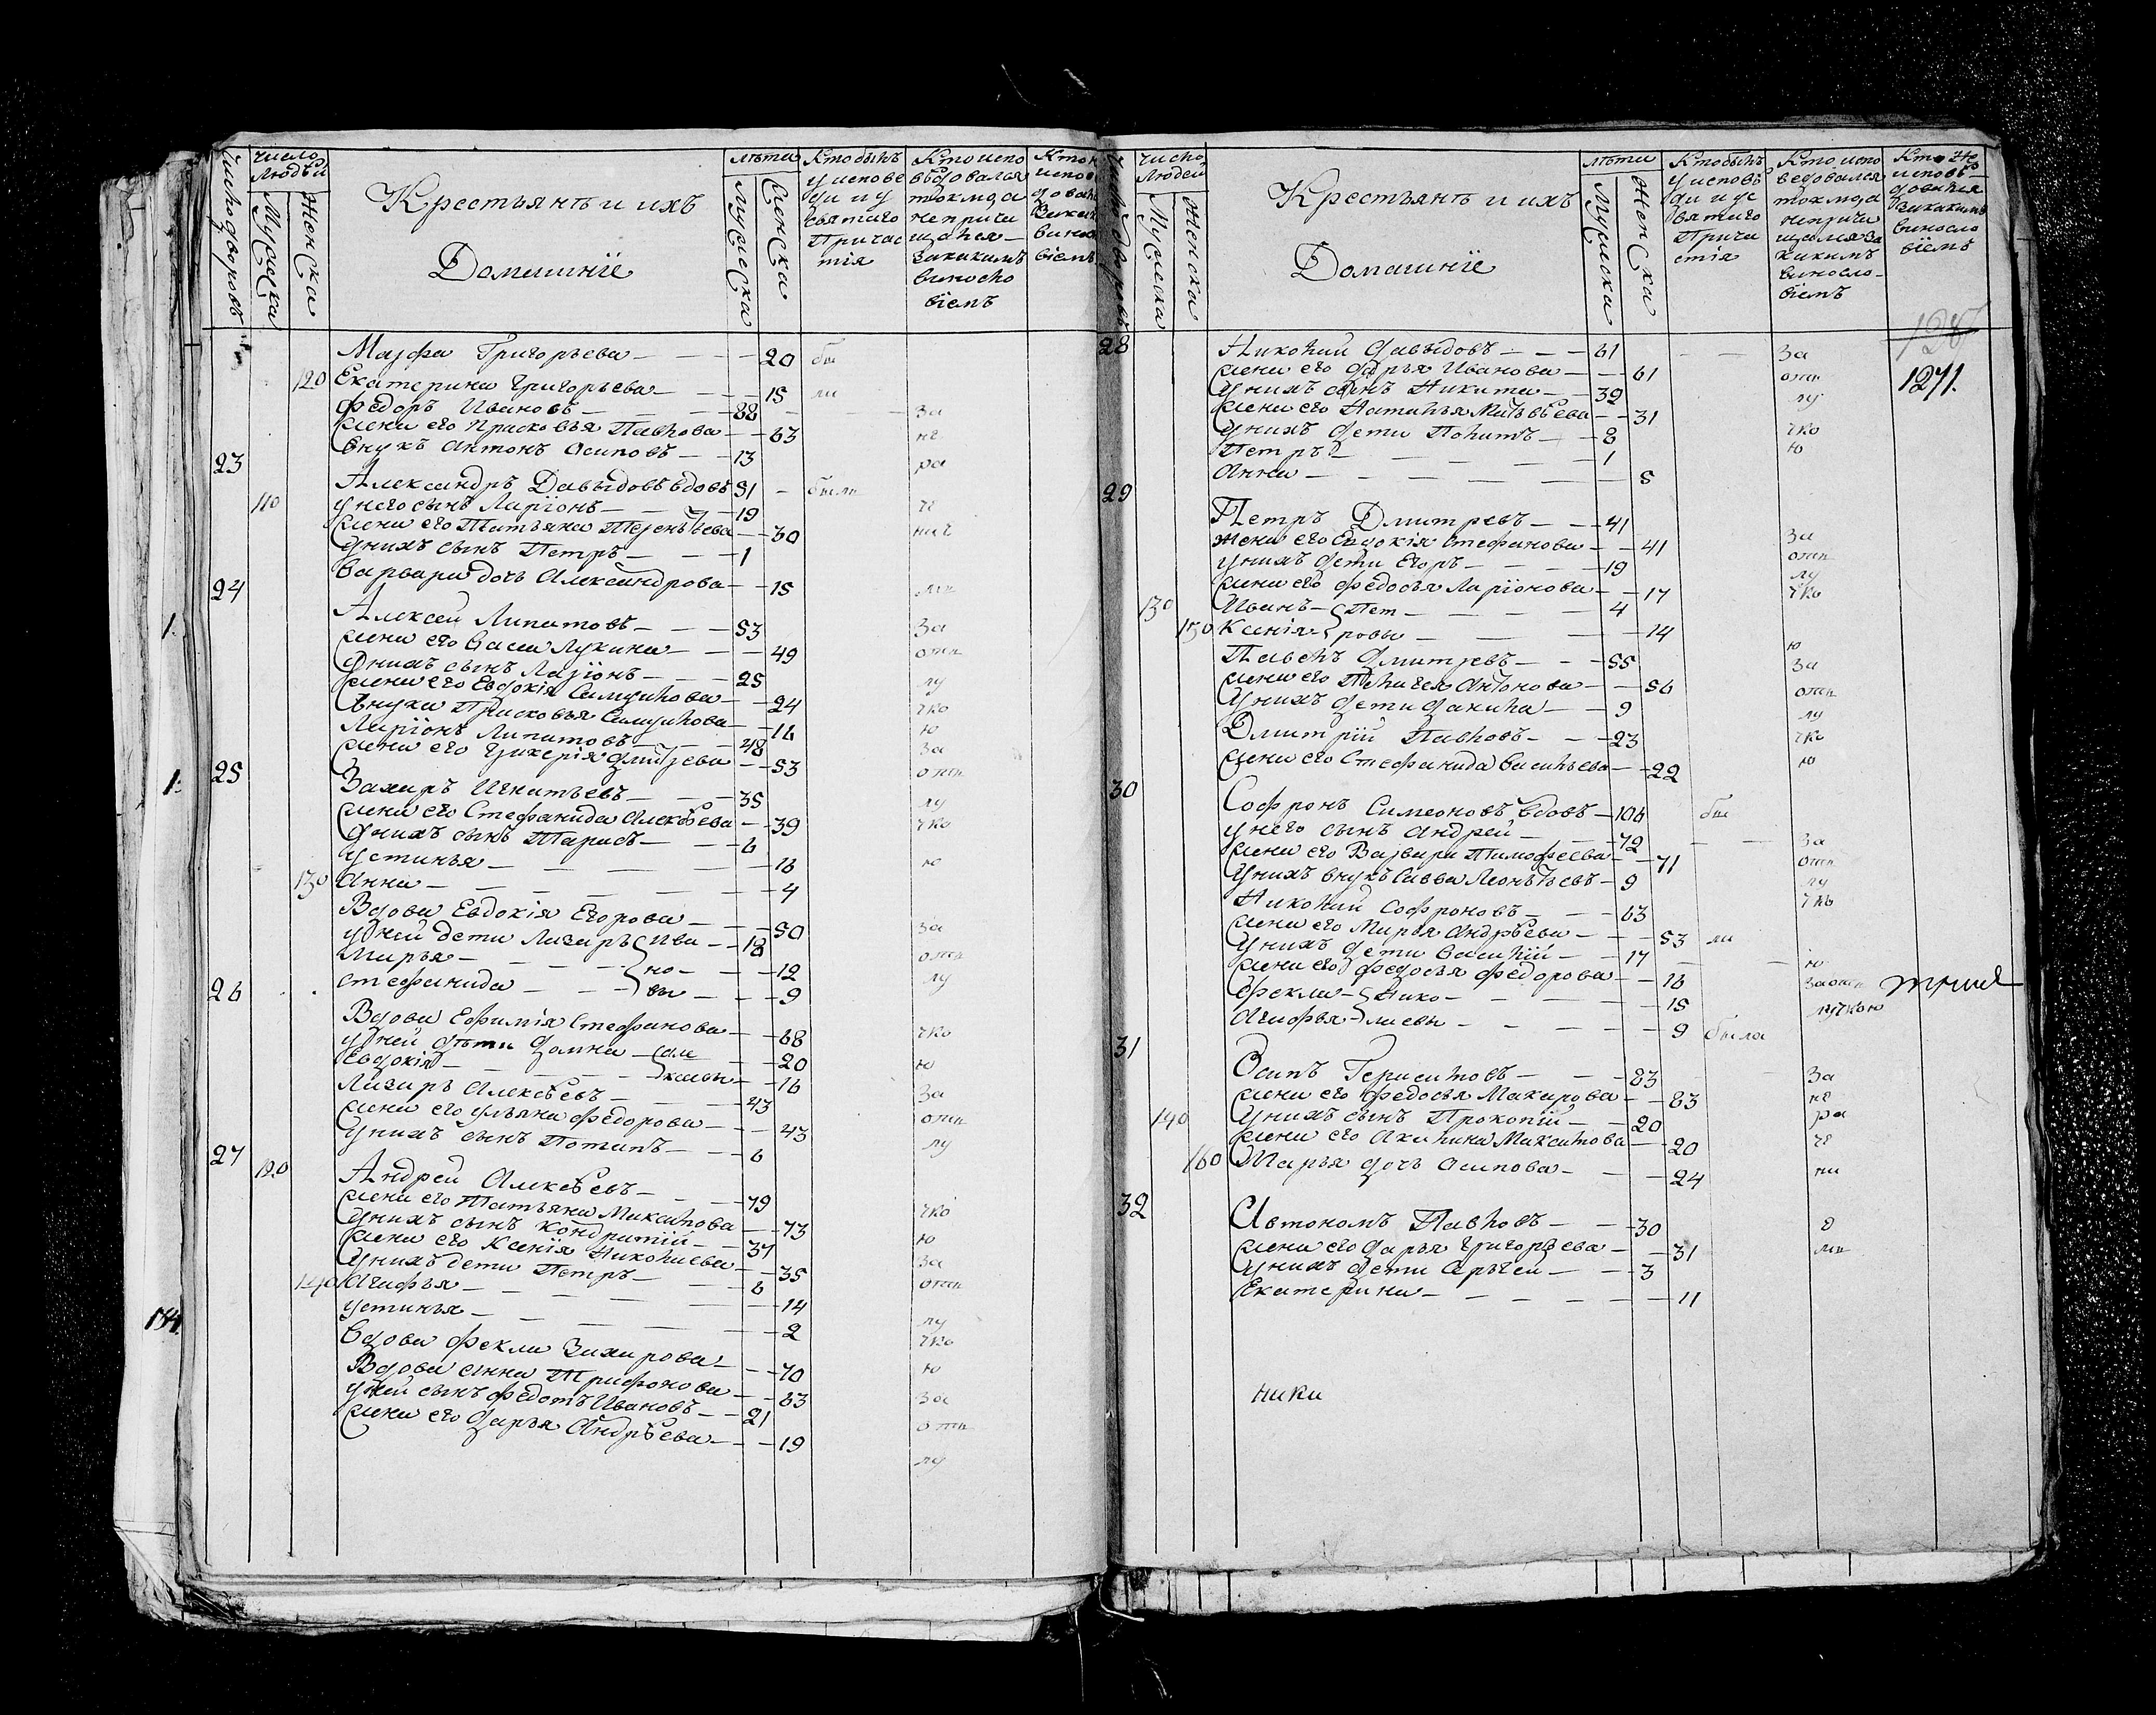 Число дворовъ
Число Людей
Мужеска
Женска
Крестьянъ и ихъ
Домашнїе
лѣта
Мужеска
Женска
Кто былъ
у испове
ди и у
святаго
Причас
тїя
Кто испо
вѣдовался
токмо а
не прича
щался
За какимъ
виносло
вїемъ
Марфа Григорьева — 20 бы
120 Екатерина Григорьева — 15 ли
Федоръ Ивановъ — 88 За
Жена его Прасковья Павлова — 63 не
Внукъ Антонъ Осиповъ — 13 ра
23
Александръ Давыдовъ вдовъ 51 были
110 у него сынъ Ларїонъ — 19
Жена его Татьяна Терентьева — 30
У нихъ сынъ Петръ — 1
Варвара дочь Александрова — 15
24
Алексей Липатовъ — 53 За
Жена его Васса Лукина — 49 отл
У нихъ сынъ Ларїонъ — 25 лу
Жена его Евдокїя Самуилова — 24 чко
Внука Прасковья Самуилова — 16 ю
Ларїонъ Липатовъ — 48 За
Жена его Гликерїя Дмитрева — 53 отл
25
Захаръ Игнатьевъ — 35 лу
Жена его Стефанида Алексѣева — 39 чко
У нихъ сынъ Тарасъ — 6
Устинья — 16 ю
130 Анна — 4
Вдова Евдокїя Егорова — 50 За
У ней дети Лазаръ Ива — 18 отл
Марья — но — 12 лу
Стефанида — вы — 9
26
Вдова Ефимїя Стефанова — 68 чко
У ней дѣти Домна — Але — 20 ю
Евдокїя — ксѣвы — 16
Лазаръ Алексѣевъ — 43 За
Жена его Ульяна Федорова — 43 отл
У нихъ сынъ Потапъ — 6 лу
27 120
Андрей Алексѣевъ — 79
Жена его Татьяна Максимова — 73 чко
У нихъ сынъ Кондратїй — 37 ю
Жена его Ксенїя Николаева — 35 За
У нихъ дети Петръ — 6 отл
140 Агафья — 14
Устинья — 2 лу
Вдова Фекла Захарова — 70 чко
Вдова Анна Трифонова — 63 ю
У ней сынъ Федотъ Ивановъ — 21 За
Жена его Дарья Андрѣева — 19 отл
лу
Число
Людей
Мужеска
Женска
Крестьянъ и ихъ
Домашнїе
лѣта
Мужеска
Женска
Кто былъ
у исповѣ
ди и у с
вятаго
Прича
стїя
Кто испо
ведовался
токмо а
не прича
щался За
какимъ
виносло
вїемъ
Кто не
исповѣ
довался
За какимъ
виносло
вїемъ
1271.
28
Николай Давыдовъ — 61 За
Жена его Дарья Иванова — 61 отл
У нихъ сынъ Никита — 32 лу
Жена его Наталья Матвѣева — 31 чко
У нихъ дети Ипатъ — 8 ю
Петръ — 1
Анна — 5
29
Петръ Дмитревъ — 41
Жена его Евдокїя Стефанова — 41 За
У нихъ дети Егоръ — 19 отл
Жена его Федосья Ларїонова — 17 лу
130 Иванъ — Пет — 4 чко
150 Ксенїя — ровы — 14
Павелъ Дмитревъ — 55 За
Жена его Пелагея Антонова — 56 отл
У нихъ дети Данила — 9 лу
Дмитрїй Павловъ — 23 чко
Жена его Стефанида Васильева — 22 ю
30
Софронъ Симеоновъ вдовъ — 106 бы
У него сынъ Андрей — 72 За
Жена его Варвара Тимофеева — 71 отл
У нихъ внукъ Савва Леонтьевъ — 9 лу
Николай Софроновъ — 63 чко
Жена его Марья Андрѣева — 53 ли
У нихъ дети Василїй — 17 ю
Жена его Федосья Федорова — 16 За отл
Фекла — Нико — 15 лучкою
Агафья — лаевы — 9 была
31
Осипъ Герасимовъ — 83 За
Жена его Федосья Макарова — 83 не
140 У нихъ сынъ Прокопїй — 20 ра
Жена его Акилина Максимова — 20 че
160 Марья дочь Осипова — 24 ни
32
Автономъ Павловъ — 30
Жена его Дарья Григорьева — 31
У нихъ дети Сергей — 3
Екатерина — 11
ники